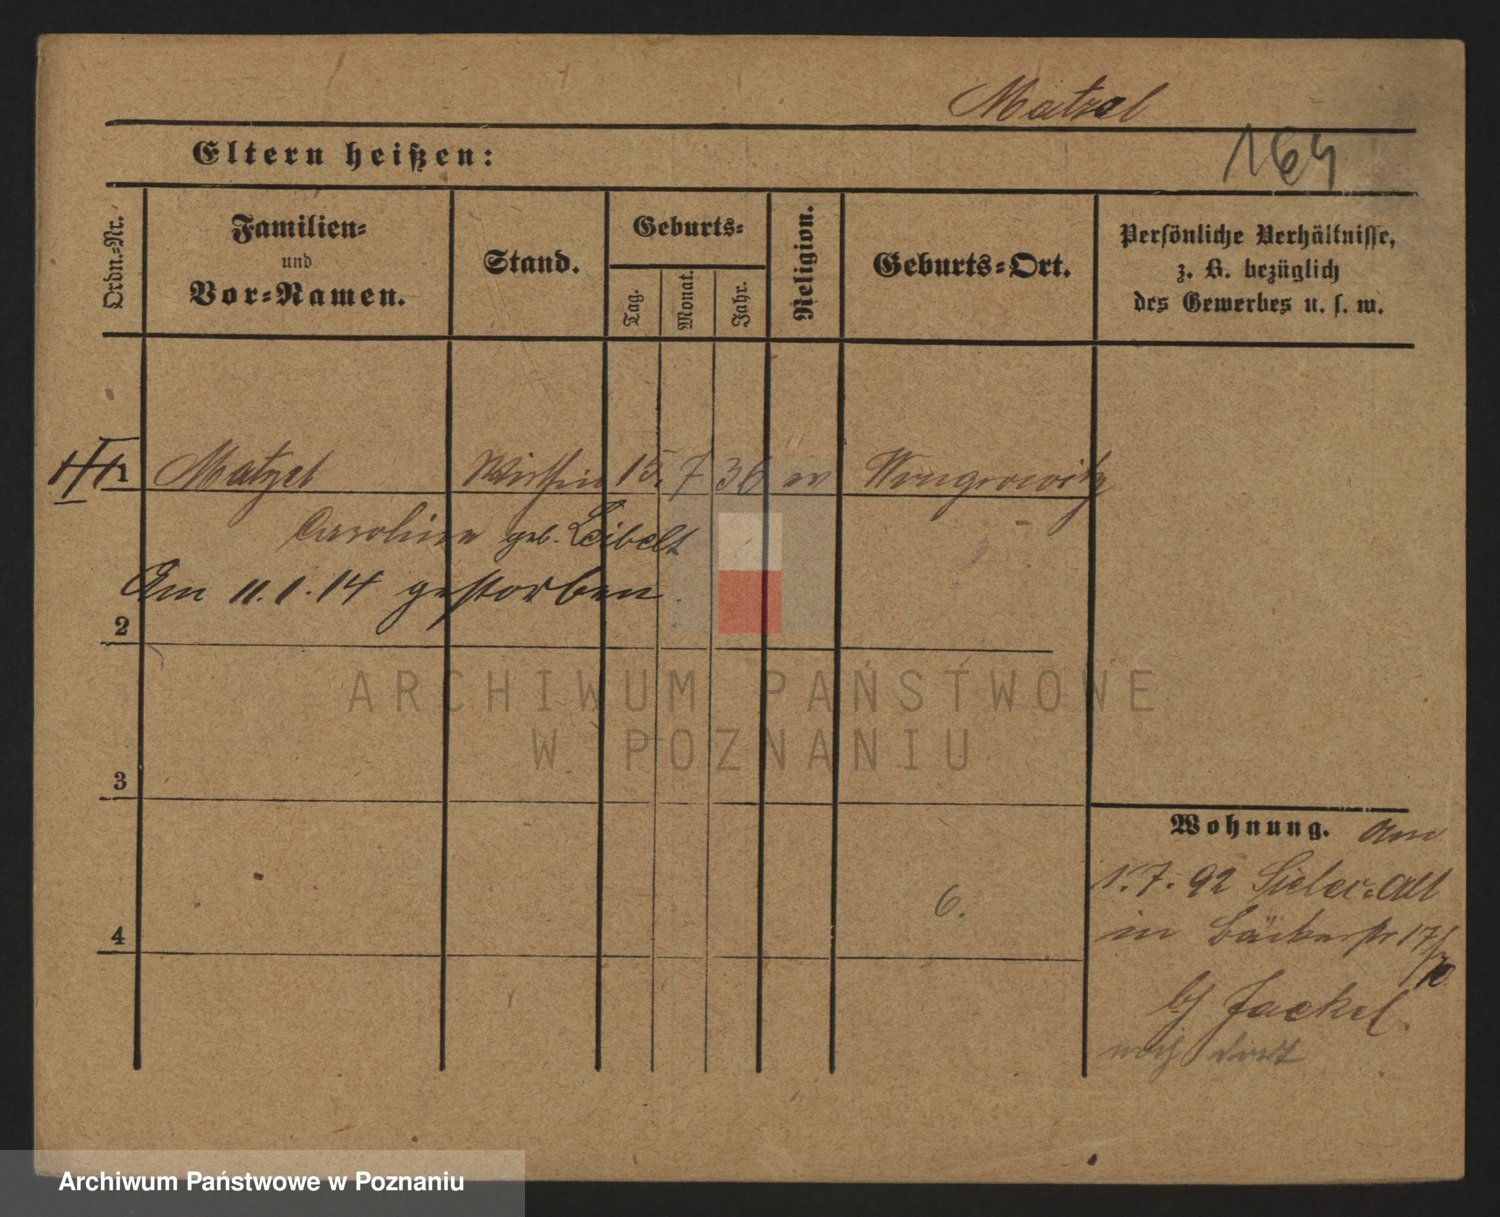 Matzel
164
Eltern heißen:
Ordn.-Nr.
Familien-
und
Vor-Namen.
Stand.
Geburts-
Tag.
Monat.
Jahr.
Religion.
Geburts-Ort.
Persönliche Verhältnisse,
z. B. bezüglich
des Gewerbes u. s. w.
1 Matzel 15. 7 36 ev Wongrowitz
Caroline geb. Leibelt
Am 11.1.14 gestorben.
2
ARCHIWUM PAŃSTWOWE
W POZNANIU
3
Wohnung. Am
1.7.92
6.
in Bäckerstr 17/
4
b/ Jaekel
noch dort
Archiwum Państwowe w Poznaniu